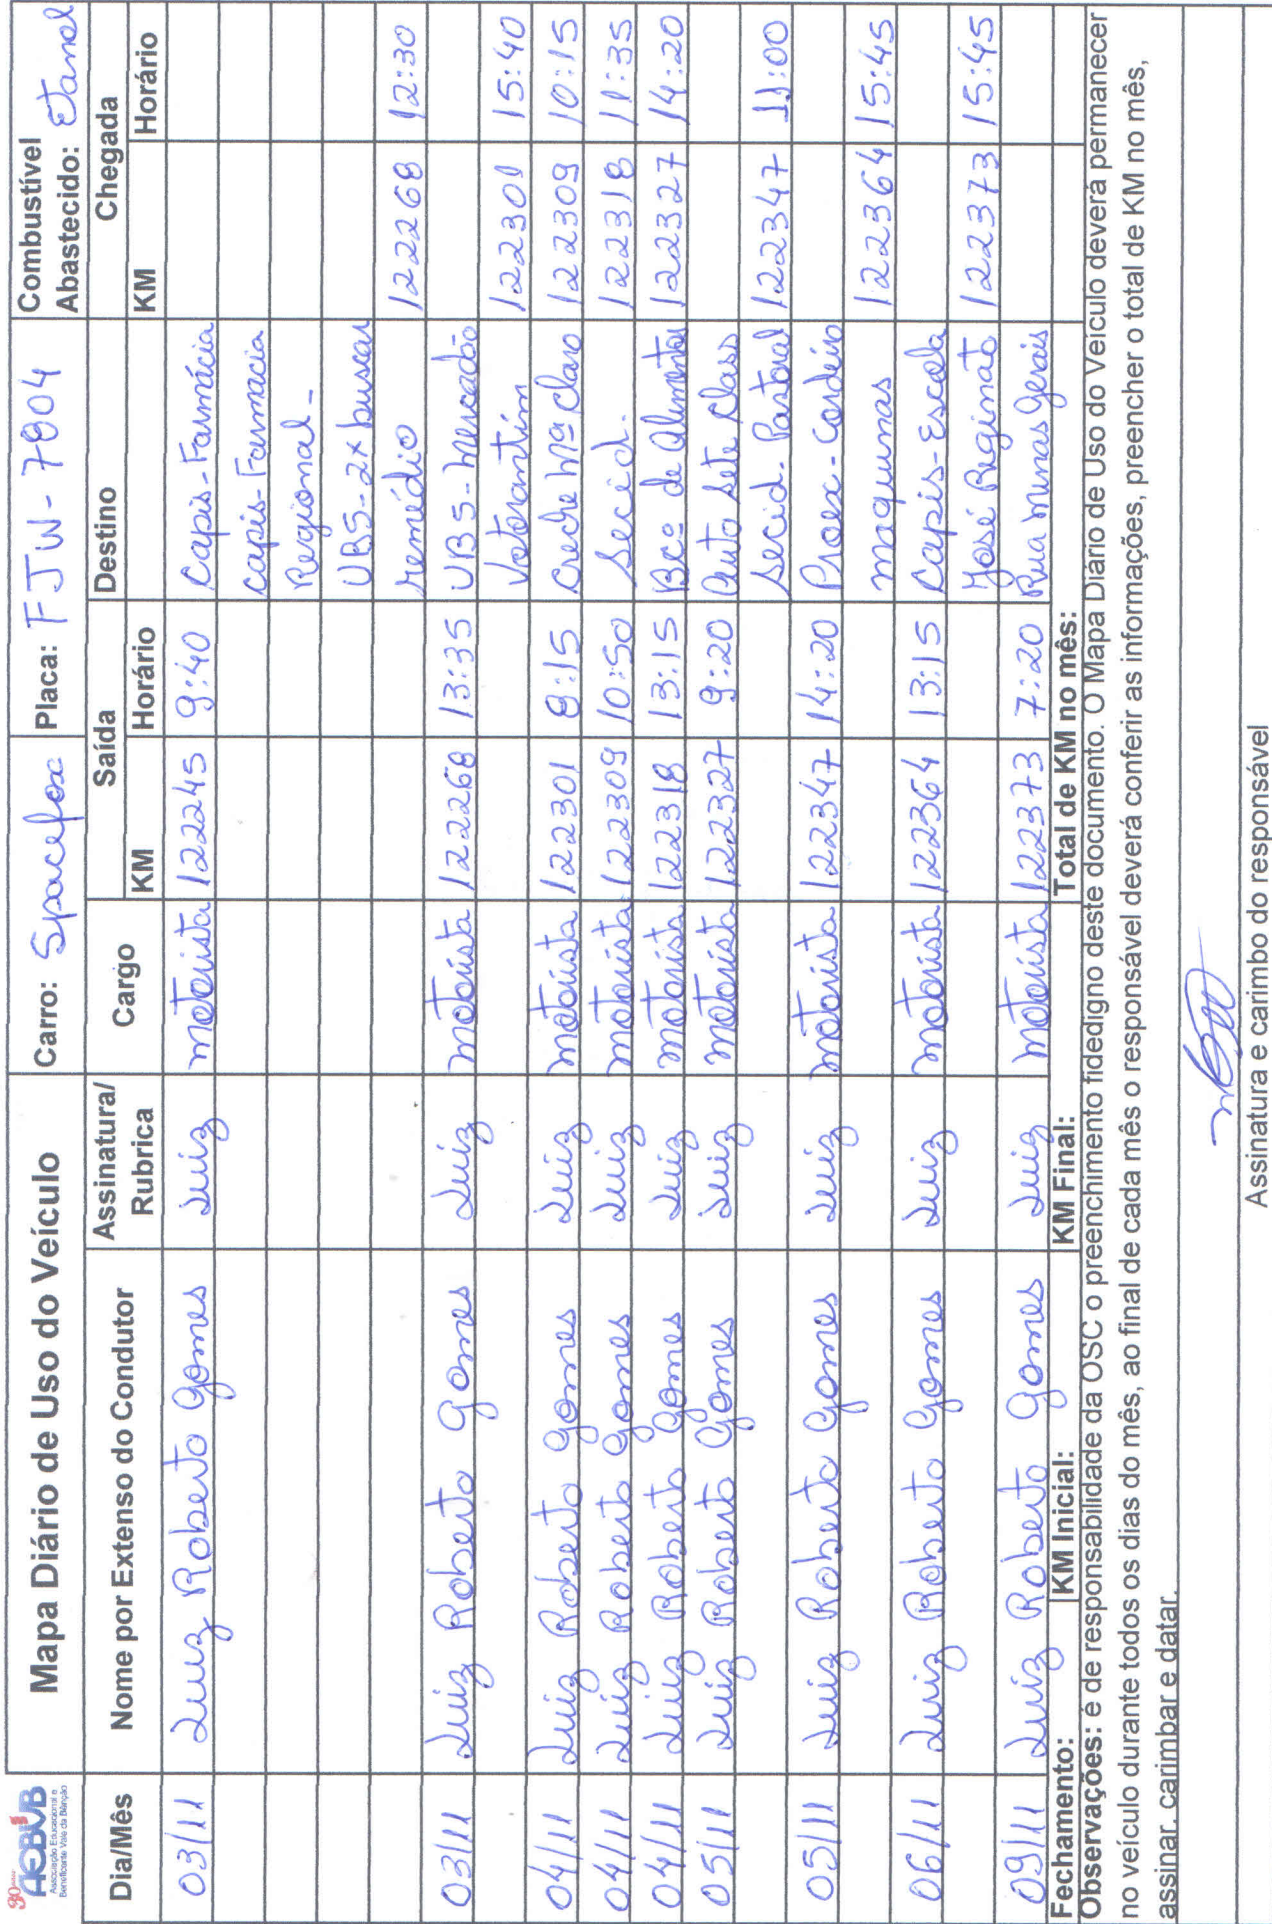 90 anos
AEBVB
Associação Educacional e
Beneficente Vale da Bênção
Mapa Diário de Uso do Veículo
Carro: Spacefox
Placa: FJW-7804
Combustível
Abastecido: Etanol
Dia/Mês
Nome por Extenso do Condutor
Assinatura/
Rubrica
Cargo
Saída
Destino
Chegada
KM Horário
KM Horário
03/11 Luiz Roberto Gomes Luiz motorista 122245 9:40 Capis-Farmácia
capis-Farmacia
Regional-
UBS-2x buscar
remédio 122268 12:30
03/11 Luiz Roberto Gomes Luiz motorista 122268 13:35 UBS-Mercadão
Votorantim 122301 15:40
04/11 Luiz Roberto Gomes Luiz motorista 122301 8:15 Creche Mª Claro 122309 10:15
04/11 Luiz Roberto Gomes Luiz motorista 122309 10:50 Secid. 122318 11:35
04/11 Luiz Roberto Gomes Luiz motorista 122318 13:15 Bcº de Alimentos 122327 14:20
05/11 Luiz Roberto Gomes Luiz motorista 122327 9:20 Auto Sete Claro
Secid. Pastoral 122347 11:00
05/11 Luiz Roberto Gomes Luiz motorista 122347 14:20 Proex-Cordeiro
maquinas 122364 15:45
06/11 Luiz Roberto Gomes Luiz motorista 122364 13:15 Capis-Escola
José Reginato 122373 15:45
09/11 Luiz Roberto Gomes Luiz motorista 122373 7:20 Rua Minas Gerais
Fechamento: KM Inicial: KM Final: Total de KM no mês:
Observações: é de responsabilidade da OSC o preenchimento fidedigno deste documento. O Mapa Diário de Uso do Veículo deverá permanecer
no veículo durante todos os dias do mês, ao final de cada mês o responsável deverá conferir as informações, preencher o total de KM no mês,
assinar, carimbar e datar.
Assinatura e carimbo do responsável